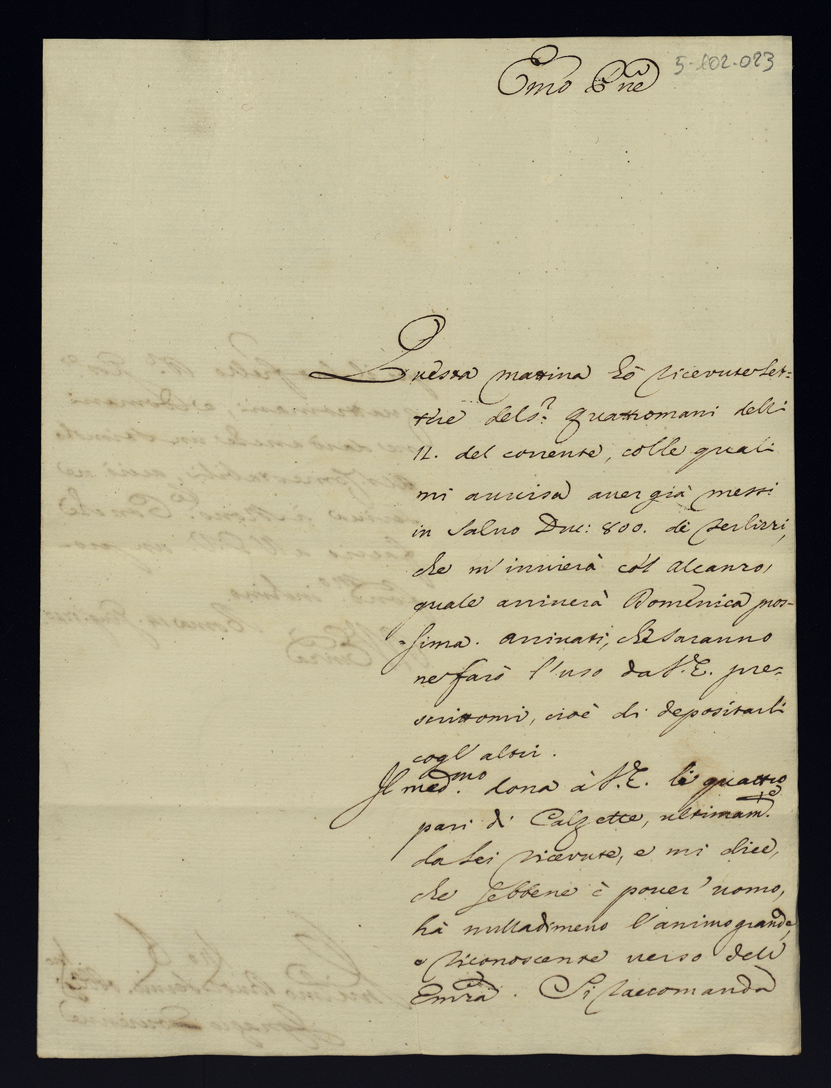 5-102-023
Emo Pne
Questa mattina hò ricevute let=
tere del S.r Quattromani delli
11. del corrente, colle quali
mi avvisa aver già messi
in salvo Duc: 800. di Terlizzi,
che m'invierà col Alcanzo,
quale arriverà Domenica pros=
=sima. Arrivati, che saranno
ne farò l'uso da V.E. pre=
scrittomi, cioè di depositarli
cogl'altri.
Il med.mo dona à V.E. li quattro
pari di Calzette, ultimam.te
da Lei ricevute, e mi dice,
che sebbene è pover'uomo,
hà nulladimeno l'animo grande,
e riconoscente verso dell'
Emza. Si raccomanda